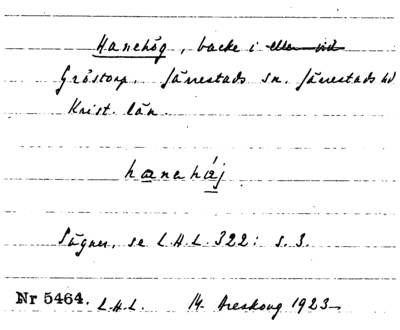 Hanehög, backe i eller vid
Gröstorp. Järrestads sn. Järrestads hd
Krist. län.
hanahǽj
Sägner, se L.H.L. 322: s. 3.
Nr 5464. L.H.L. M. Areskoug 1923